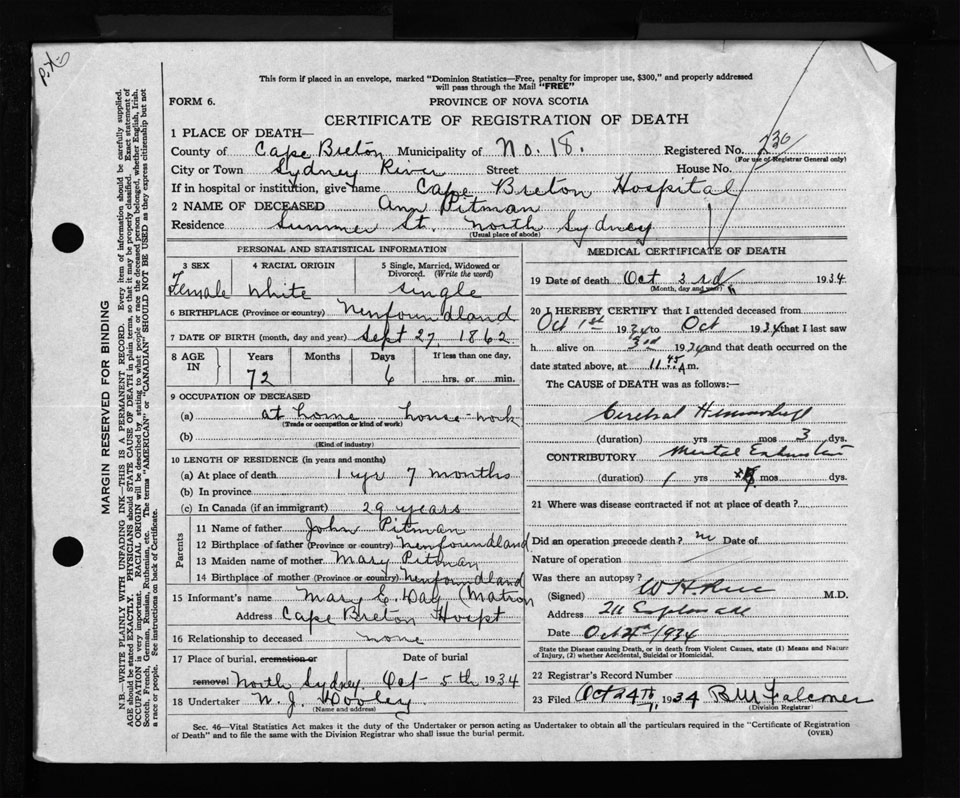 This form if placed in an envelope, marked "Dominion Statistics—Free, penalty for improper use, $300," and properly addressed
will pass through the Mail "FREE"
FORM 6.
PROVINCE OF NOVA SCOTIA
CERTIFICATE OF REGISTRATION OF DEATH
MARGIN RESERVED FOR BINDING
N.B.—WRITE PLAINLY WITH UNFADING INK—THIS IS A PERMANENT RECORD. Every item of information should be carefully supplied.
AGE should be stated EXACTLY. PHYSICIANS should STATE CAUSE OF DEATH in plain terms, so that it may be properly classified. Exact statement of
OCCUPATION is very important. RACIAL ORIGIN will be described by stating to what people or race the deceased person belonged, whether English, Irish,
Scotch, French, German, Russian, Ruthenian, etc. The terms "AMERICAN" or "CANADIAN" SHOULD NOT BE USED as they express citizenship but not
a race or people. See instructions on back of Certificate.
1 PLACE OF DEATH—
County of Cape Breton Municipality of No. 18. Registered No. 230
(For use of Registrar General only)
City or Town Sydney River Street House No.
If in hospital or institution, give name Cape Breton Hospital
2 NAME OF DECEASED Ann Pitman
Residence Summer St. North Sydney
(Usual place of abode)
PERSONAL AND STATISTICAL INFORMATION
3 SEX 4 RACIAL ORIGIN 5 Single, Married, Widowed or
Divorced. (Write the word)
Female White Single
6 BIRTHPLACE (Province or country) Newfoundland
7 DATE OF BIRTH (month, day and year) Sept 27, 1862
8 AGE IN Years Months Days If less than one day,
72 6 hrs. or min.
9 OCCUPATION OF DECEASED
(a) at home house-work
(Trade or occupation or kind of work)
(b)
(Kind of industry)
10 LENGTH OF RESIDENCE (in years and months)
(a) At place of death 1 yr 7 months
(b) In province
(c) In Canada (if an immigrant) 29 years
Parents
11 Name of father John Pitman
12 Birthplace of father (Province or country) Newfoundland
13 Maiden name of mother Mary Pitman
14 Birthplace of mother (Province or country) Newfoundland
15 Informant's name Mary E. Day (Matron
Address Cape Breton Hospt
16 Relationship to deceased none
17 Place of burial, cremation or removal Date of burial
North Sydney Oct 5th 1934
18 Undertaker W. J. Dooley
(Name and address)
MEDICAL CERTIFICATE OF DEATH
19 Date of death Oct 3rd 1934
(Month, day and year)
20 I HEREBY CERTIFY that I attended deceased from
Oct 1st 1934 to Oct 1934 that I last saw
h alive on 3rd 1934 and that death occurred on the
date stated above, at 11.45 A m.
The CAUSE of DEATH was as follows:
Cerebral Hemorrhage
(duration) yrs mos 3 dys.
CONTRIBUTORY Mental Exhaustion
(duration) 1 yrs mos dys.
21 Where was disease contracted if not at place of death?
Did an operation precede death? no Date of
Nature of operation
Was there an autopsy?
(Signed) M.D.
Address
Date Oct 4th 1934
State the Disease causing Death, or in death from Violent Causes, state (1) Means and Nature
of Injury, (2) whether Accidental, Suicidal or Homicidal.
22 Registrar's Record Number
23 Filed Oct 24th 1934 B. M. Falconer
(Division Registrar)
Sec. 46—Vital Statistics Act makes it the duty of the Undertaker or person acting as Undertaker to obtain all the particulars required in the "Certificate of Registration
of Death" and to file the same with the Division Registrar who shall issue the burial permit.
(OVER)